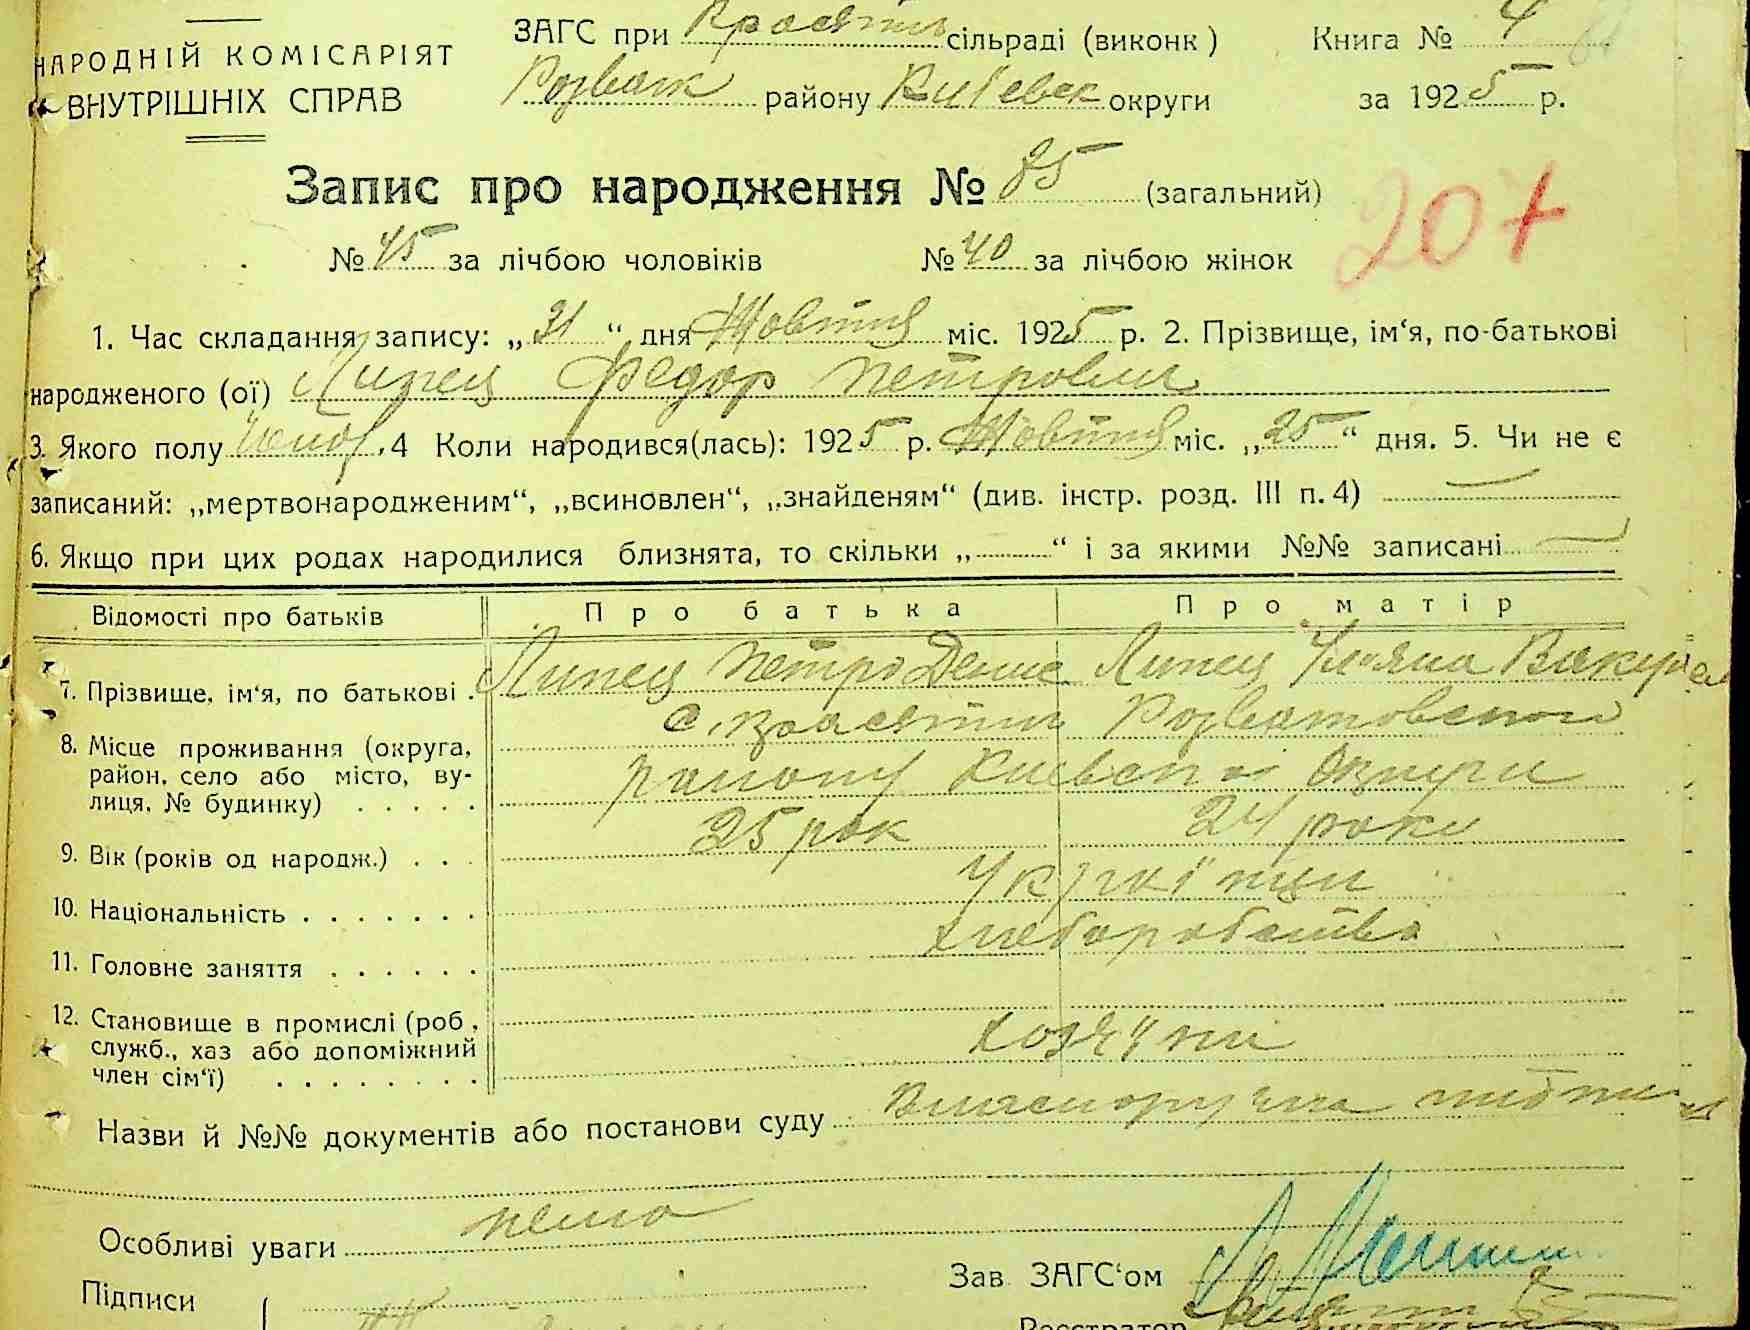 НАРОДНІЙ КОМІСАРІЯТ
ВНУТРІШНІХ СПРАВ
ЗАГС при Красятич сільраді (виконк )
Розваж району Київськ округи
Книга № 4
за 1925 р.
Запис про народження № 85 (загальний)
207
№ 45 за лічбою чоловіків № 40 за лічбою жінок
1. Час складання запису: „31“ дня Жовтня міс. 1925 р. 2. Прізвище, ім‘я, по-батькові
народженого (ої) Липец Федор Петрович
3. Якого полу .4 Коли народився(лась): 1925 р. Жовтня міс. „25“ дня. 5. Чи не є
записаний: „мертвонародженим“, „всиновлен“, „знайденям“ (див. інстр. розд. III п. 4) —
6. Якщо при цих родах народилися близнята, то скільки „ “ і за якими №№ записані —
Відомості про батьків Про батька Про матір
7. Прізвище, ім‘я, по батькові . Липец Петро Денис Липец Уляна
8. Місце проживання (округа, район, село або місто, ву-
лиця, № будинку) . . . . .
с. Красятичи
району Киевской Округи
9. Вік (років од народж.) . . . 25 рок 24 роки
10. Національність . . . . . . . Українци
11. Головне заняття . . . . . . хлеборобство
12. Становище в промислі (роб.,
служб., хаз або допоміжний
член сім‘ї) . . . . . . . .
хозяини
Назви й №№ документів або постанови суду
Особливі уваги нема
Підписи
Зав ЗАГС‘ом
Реєстратор